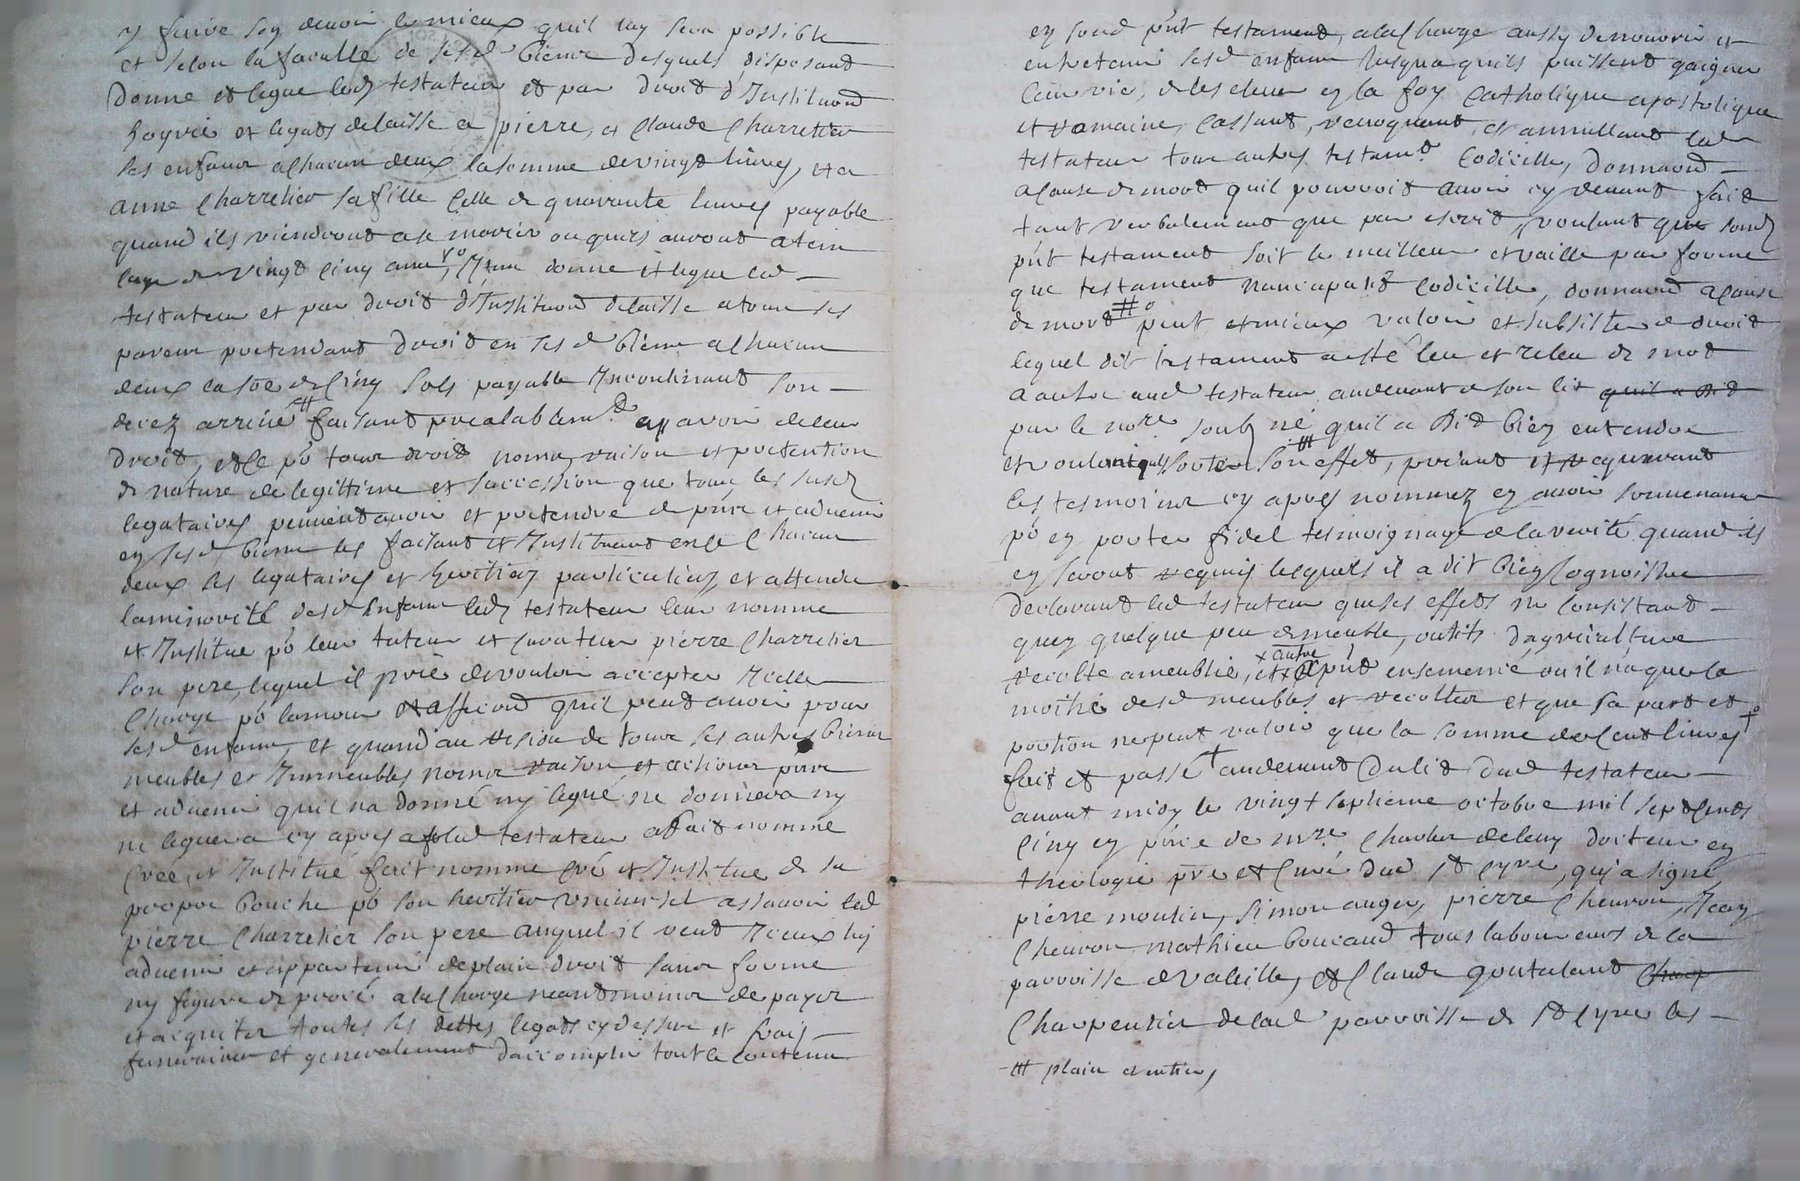 y faire son devoir le mieux quil luy sera possible
et selon la faculté de sesd biens desquels disposant
donne et legue led testateur et par droit d'Institu͠on
hoyrie et legats delaisse a pierre, et Claude Charretier
ses enfans a chacun deux la somme de vingt livres, et a
anne Charretier sa fille celle de quarante livres payable
quand ils viendront a se marier ou quils auront atein
lage de vingt cinq ans, Item donne et legue led
testateur et par droit d'Institu͠on delaisse a tous ses
parens pretendant droit en sesd biens a chacun
deux la so͠e de cinq sols payable Incontinant son
decez arrivé faisant prealablem.t apparoir de leur
droit, et ce po tous droits noms raison et pretention
de nature de legittime et succession que tous les susd
legataires peuvent avoir et pretendre de p͠nt et advenir
en sesd biens les faisant et Instituant en ce chacun
deux ses legataires et heritiers particuliers et attendu
la minorité desd enfans led testateur leur nomme
et Institue po leur tuteur et curateur pierre Charretier
son pere, lequel il prie de vouloir accepter icelle
charge po lamour et affection quil peut avoir pour
sesd enfans, et quand au residu de tous ses autres biens
meubles et Immeubles noms raison et actions p͠nt
et advenir quil na donné ny legué ne donnera ny
ne leguera cy apres led testateur a fait nommé
créé et Institué fait nomme cré et Institue de sa
propre bouche po son heritier universel assavoir led
pierre Charretier son pere auquel il veut Iceux luy
advenir et appartenir de plain droit sans forme
ny figure de procé a la charge neantmoins de payer
et acquiter toutes ses dettes legats cy dessus et frais
funeraires et generalement daccomplir tout le contenu
en sond p͠nt testament, a la charge aussy de nourrir et
entretenir sesd enfans Jusqua quils puissent gaigner
leur vie, de les elever en la foy Catholique apostolique
et romaine, Cassant, revoquant, et annullant led
testateur tous autres testam.t Codicille, donna͠on
a cause de mort quil pourroit avoir cy devant fait
tant verbalement que par escrit, voulant que sond
p͠nt testament soit le meilleur et vaille par forme
que testament nuncupatif Codicille, donna͠on a cause
de mort # peut et mieux valoir et subsister de droit
lequel dit testament a esté leu et releu de mot
a autre aud testateur audevant de son lit quil a dit
par le no.re soub.né quil a dit bien entendre
et vouloir quil sorte son # effet, priant et requerant
les tesmoins cy apres nommez en avoir souvenance
po en porter fidel tesmoignage de la verité quand ils
en seront requis lesquels il a dit bien Cognoistre
declarant led testateur que ses effets ne consistant
quen quelque peu de meuble, outils dagriculture
recolte ameublie, x autre et a p͠nt ensemencé ou il na que la
moitié desd meubles et recoltes et que sa part et
portion ne peut valoir que la somme de cent livres
fait et passé audevant du lit dud testateur
avant midy le vingt septieme octobre mil sept cents
cinq en p͠nce de m.re Charles deleuy docteur en
theologie p͠re et Curé dud st Cyre, qui a signé
pierre moulin, simon auger, pierre Cheuron, Jean
Cheuron mathieu boucaud tous laboureurs de la
parroisse de Valeille, et Claude goutaland Charp
Charpentier de lad parroisse de st Cyre les
# plain et entier,